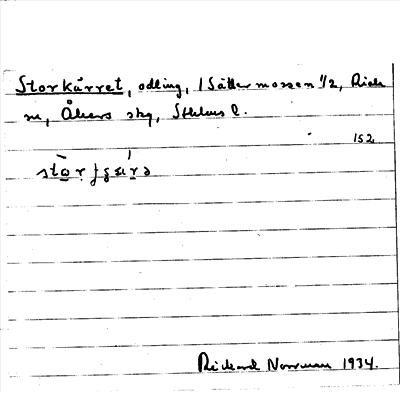 Storkärret, odling, / Sättermossen 1/2,
m, Åkers skg, Sthlms l.
152
Rickard Norrman 1934.